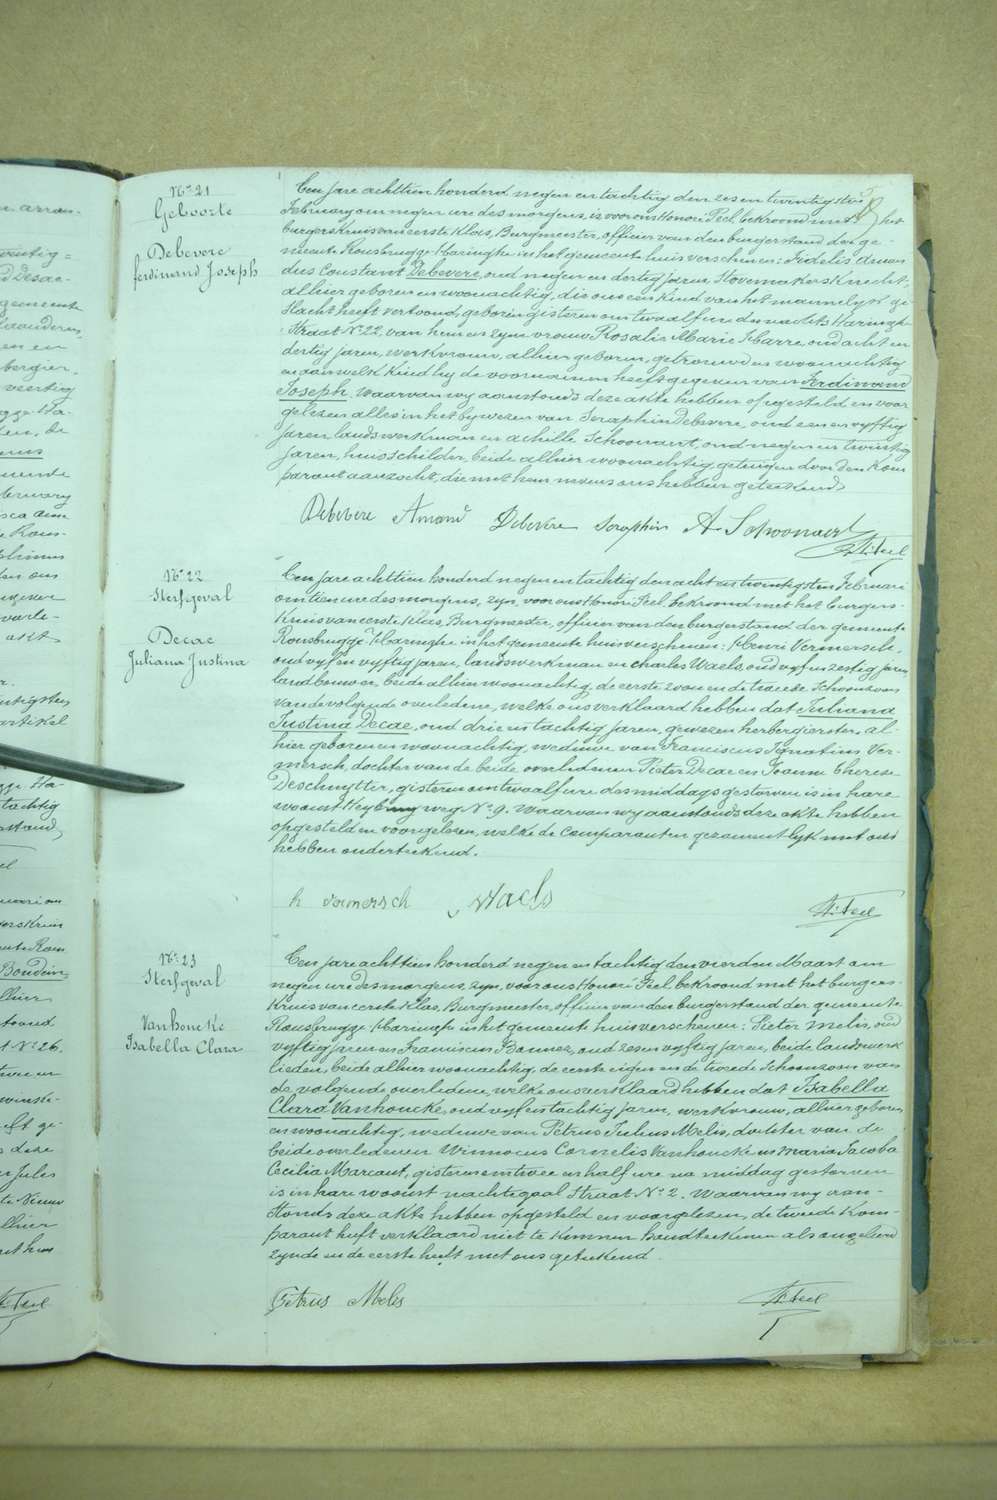 Nr 21
Geboorte
Debevere
ferdinand Joseph
Een jare achttien honderd negen en tachtig den zes en twintigsten
February om negen ure des morgens, is voor ons Honoré Feel, bekroond met het
burgerskruis van eerste klas, Burgmeester, officier van den burgerstand der ge-
meente Rousbrugge Haringhe in het gemeente huis verschenen: Fidelis Aman-
dus Constant Debevere, oud negen en dertig jaren, Hovemakers Knecht,
alhier geboren en woonachtig, die ons een kind van het mannelyk ge-
slacht heeft vertoond, geboren gisteren om twaalf ure des nachts Haringhe
Straat No 22, van hem en zyne vrouw Rosalie Marie Habarre, oud acht en
dertig jaren, werkvrouw, alhier geboren, getrouwd en woonachtig
en aan welk kind hy de voornamen heeft gegeven van Ferdinand
Joseph. Waarvan wy aanstonds deze akte hebben opgesteld en voor
gelezen alles in het bywezen van Seraphin Debevere, oud een en vyftig
jaren, landswerkman en Achille Schoonaert, oud negen en twintig
jaren, huisschilder, beide alhier woonachtig, getuigen door den kom
parant aanzocht, die met hem nevens ons hebben geteekend.
Debevere Amand Debevere Seraphin A. Schoonaert
H. Feel
Nr 22
Sterfgeval
Decae
Juliana Justina
Een jare achttien honderd negen en tachtig den acht en twintigsten Februari
om tien ure des morgens, zyn, voor ons Honoré Feel bekroond met het burgers-
kruis van eerste klas, Burgmeester, officier van den burgerstand der gemeente
Rousbrugge Haringhe in het gemeente huis verschenen: Henri Vermersch,
oud vyf en vyftig jaren, landswerkman en Charles Waels, oud vyf en zestig jaren,
landbouwer, beide alhier woonachtig, de eerste zoon en de tweede schoonzoon
van de volgende overledene, welke ons verklaard hebben dat Juliana
Justina Decae, oud drie en tachtig jaren, gewezen herbergierster, al-
hier geboren en woonachtig, weduwe van Franciscus Ignatius Ver-
mersch, dochter van de beide overledenen Pieter Decae en Joanna Theresia
Deschuytter, gisteren om twaalf ure des middags gestorven is in hare
woonst Heyb weg No 9. Waarvan wy aanstonds deze akte hebben
opgesteld en voorgelezen, welke de Comparanten gezamentlyk met ons
hebben onderteekend.
h vermersch Waels
H. Feel
Nr 23
Sterfgeval
Vanhoucke
Isabella Clara
Een jare achttien honderd negen en tachtig den vierden Maart om
negen ure des morgens, zyn, voor ons Honoré Feel bekroond met het burgers-
kruis van eerste klas, Burgmeester, officier van den burgerstand der gemeente
Rousbrugge Haringhe in het gemeente huis verschenen: Pieter Melis, oud
vyftig jaren en Franciscus Bonnez, oud zes en vyftig jaren, beide landswerk
lieden, beide alhier woonachtig, de eerste eigen en de tweede Schoonzoon van
de volgende overledene, welke ons verklaard hebben dat Isabella
Clara Vanhoucke, oud vyf en tachtig jaren, werkvrouw, alhier geboren
en woonachtig, weduwe van Petrus Julius Melis, dochter van de
beide overledenen Winnocus Cornelis Vanhoucke en Maria Jacoba
Cecilia Marcant, gisteren om twee en half ure na middag gestorven
is in hare woonst nachtegaal Straat No 2. Waarvan wy aan-
stonds deze akte hebben opgesteld en voorgelezen, de tweede kom-
parant heeft verklaard niet te kunnen handteekenen als ongeleerd
zynde en de eerste heeft met ons geteekend.
Petrus Meles
H. Feel